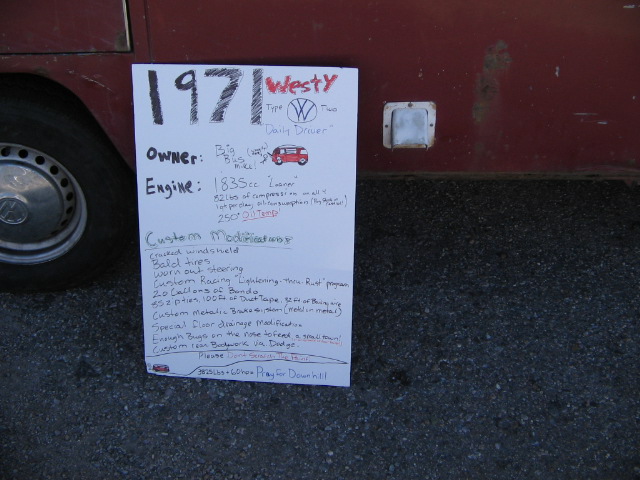 1971 Westy
Type VW Two
"Daily Driver"
Owner: Big
Bus
Mike!
Engine: 1835cc "Loaner"
52lbs of compression on all 4
1qt per day oil consumption
250° Oil Temp
Custom Modifications
Cracked windshield
Bald tires
Worn out steering
Custom Racing "Lightening-thru-Rust" program
20 Gallons of Bondo
352 p ties, 100ft of Duct Tape, 32 ft of Bailing wire
Custom Metalic Brake system (metal on metal)
Special floor drainage modification
Enough Bugs on the nose to feed a small town!
Custom rear Bodywork via Dodge.
Please Don't Scratch The Paint
3825lbs + 60hp = Pray For Downhill